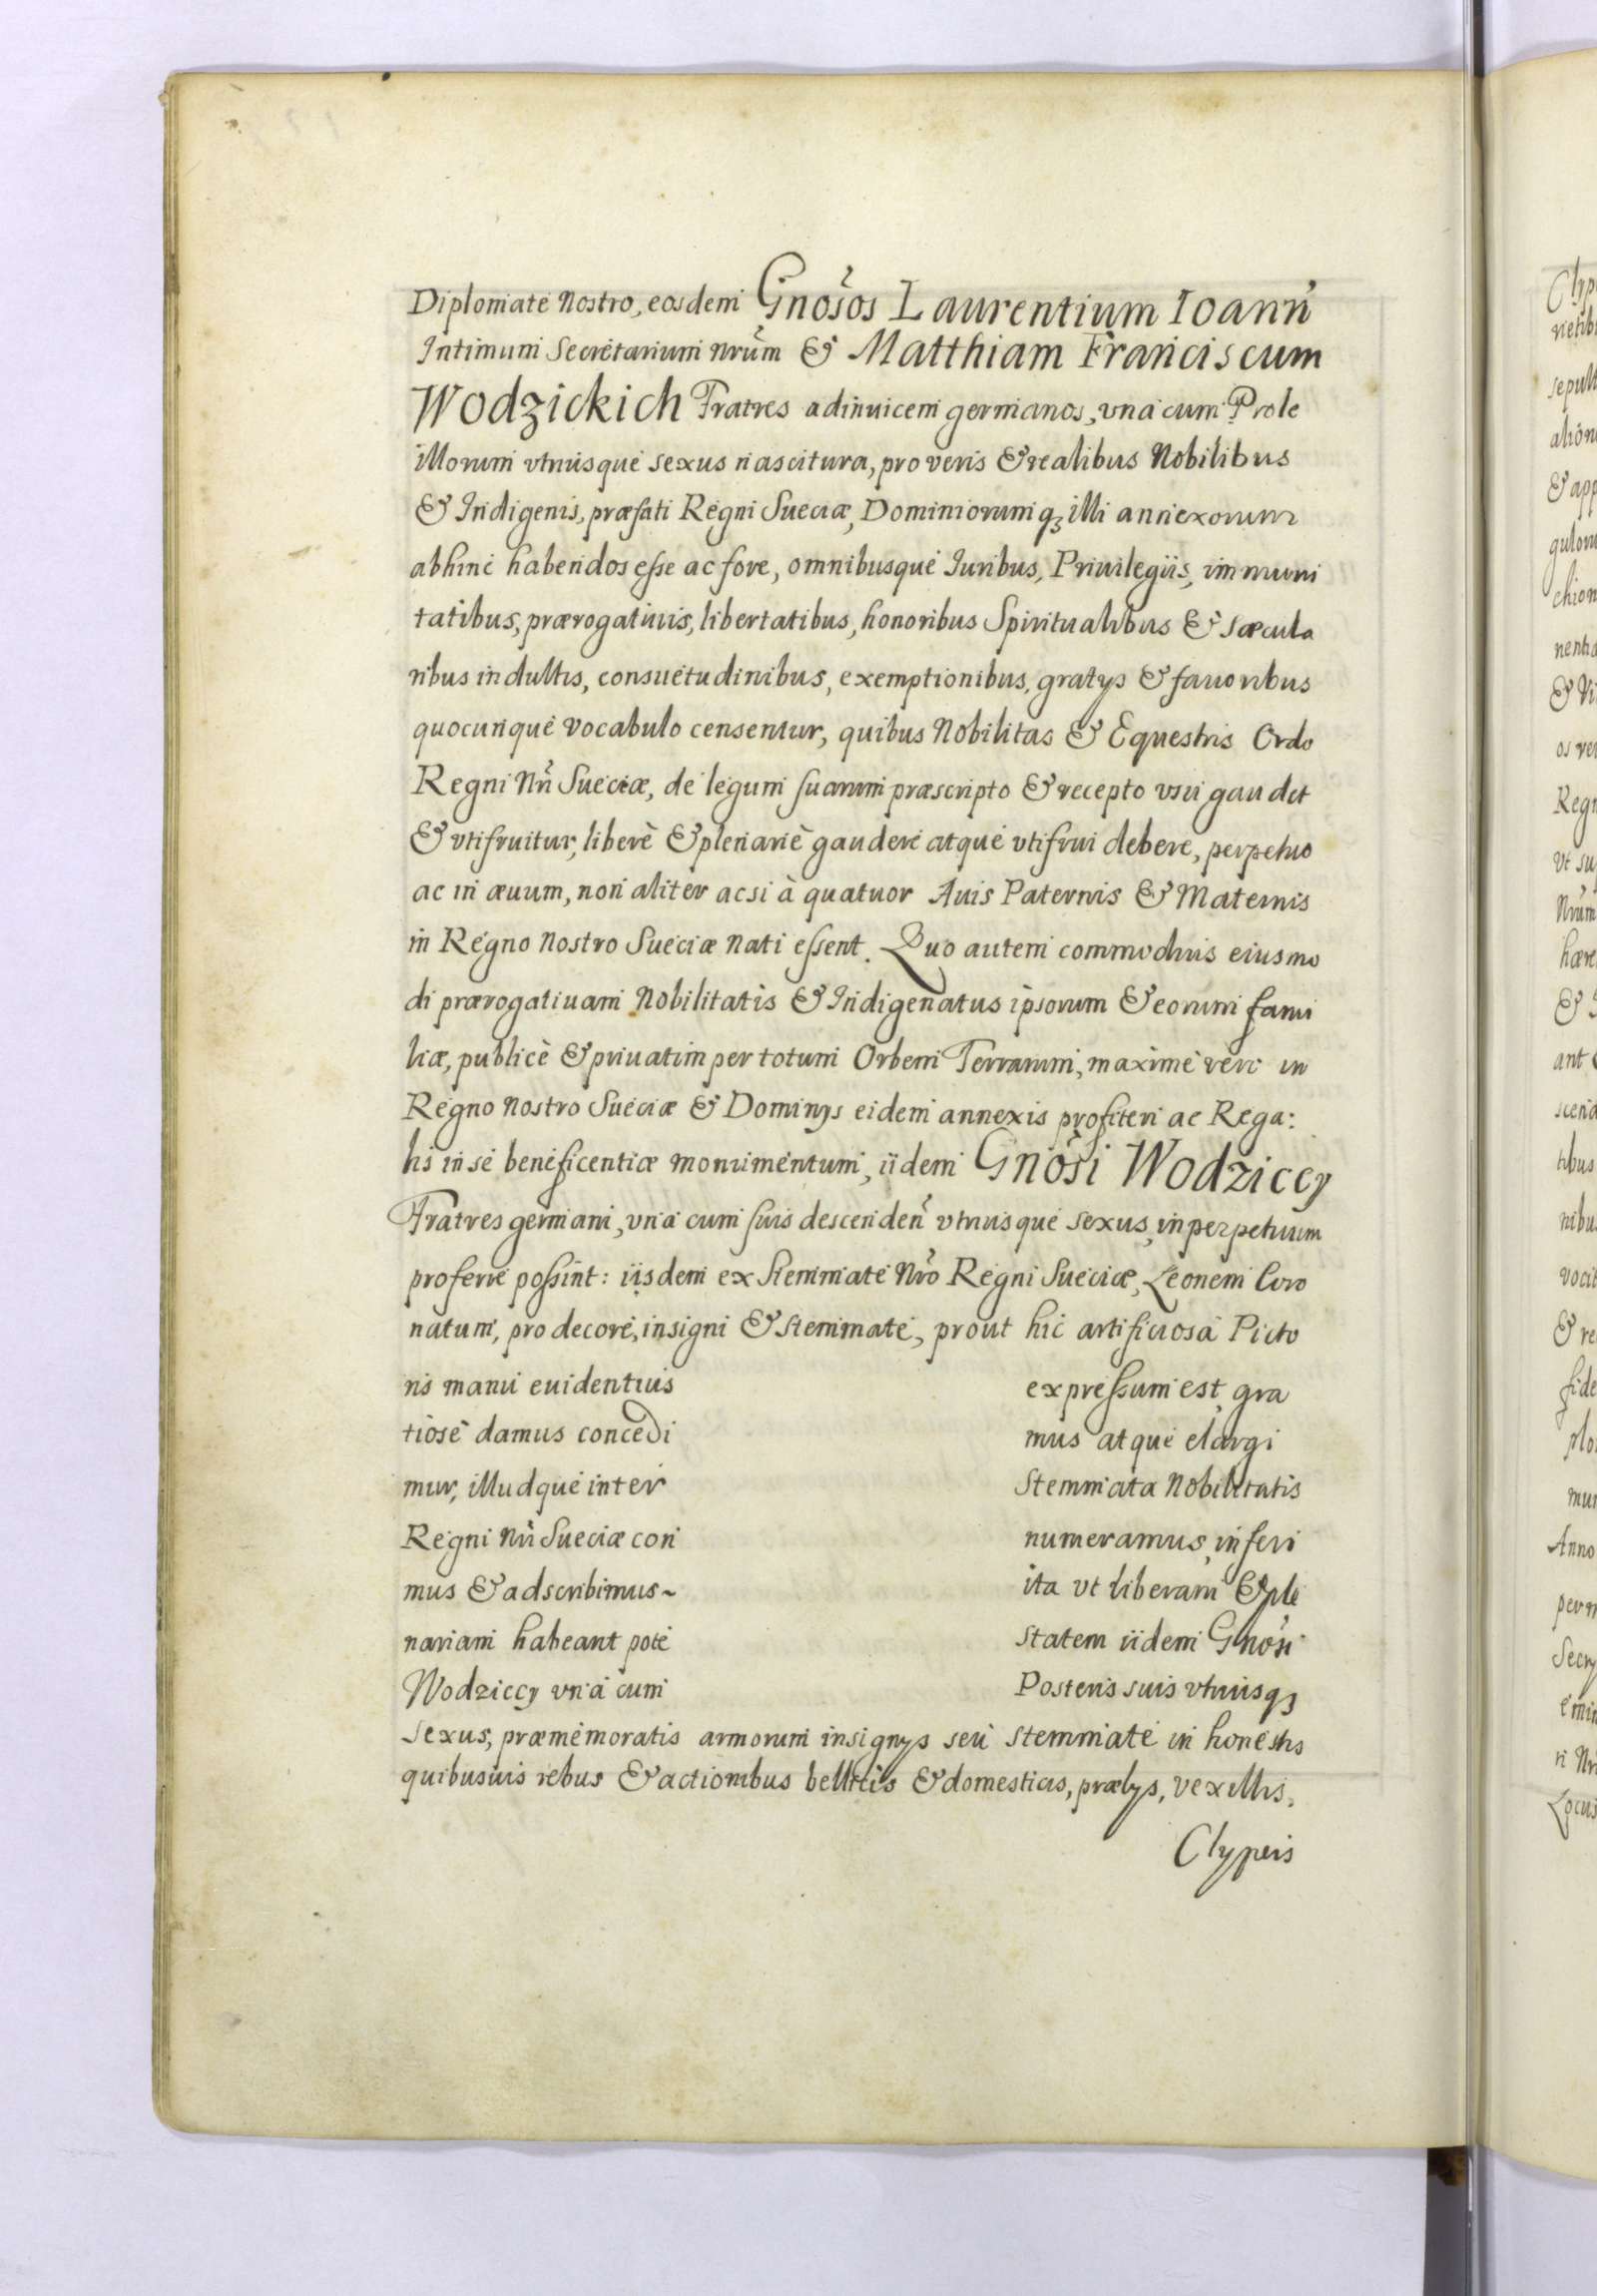 Diplomate Nostro, eosdem Gnosos Laurentium Ioann
Intimum Secretarium Nrum & Matthiam Franciscum
Wodzickich Fratres adinuicem germanos, vna cum Prole
illorum vtriusque sexus nascitura, pro veris & realibus Nobilibus
& Indigenis, præfati Regni Sueciæ, Dominiorumq3 illi annexorum
abhinc habendos esse ac fore, omnibusque Iuribus, Priuilegiis, immuni
tatibus, prærogatiuis, libertatibus, honoribus Spiritualibus & sæcula
ribus indultis, consuetudinibus, exemptionibus, gratys & fauoribus
quocunque vocabulo censentur, quibus Nobilitas & Equestris Ordo
Regni Nri Sueciæ, de legum suarum præscripto & recepto vsu gaudet
& vtifruitur, liberè & plenariè gaudere atque vtifrui debere, perpetuo
ac in æuum, non aliter acsi à quatuor Auis Paternis & Maternis
in Regno Nostro Sueciæ Nati essent. Quo autem commodius eiusmo
di prærogatiuam Nobilitatis & Indigenatus ipsorum & eorum fami
liæ, publicè & priuatim per totum Orbem Terrarum, maxime vero in
Regno Nostro Sueciæ & Dominys eidem annexis profiteri ac Rega:
lis in se beneficentiæ monumentum, iidem Gnosi Wodziccy
Fratres germani, vna cum suis descenden vtriusque sexus, in perpetuum
proferre possint: iisdem ex Stemmate Nro Regni Sueciæ, Leonem Coro
natum, pro decore, insigni & stemmate, prout hic artificiosa Picto
ris manu euidentius expressum est, gra
tiosè damus concedi mus atque elargi
mur, illudque inter Stemmata Nobilitatis
Regni Nri Sueciæ con numeramus, inseri
mus & adscribimus~ ita vt liberam & ple
nariam habeant pote statem iidem Gnosi
Wodziccy vna cum Posteris suis vtriusq3
sexus, præmemoratis armorum insignys seu stemmate in honestis
quibusuis rebus & actionibus bellicis & domesticis, prælys, vexillis,
Clypeis